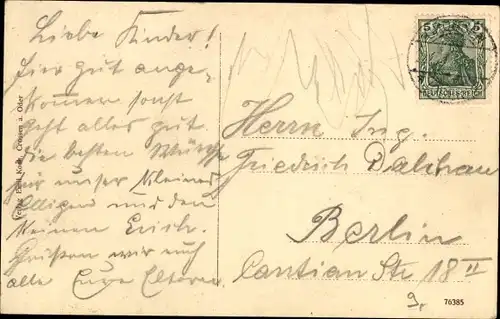 Liebe Kinder!
hier gut ange-
kommen sonst
geht alles gut.
die besten
für unser Kleines
und den
kleinen Erich.
Grüßen wir euch
alle Eure Eltern
Crossen a. Oder
5
DEUTSCHES REICH
Herrn Ing.
Friedrich
Berlin
Cantian Str 18 II
76385